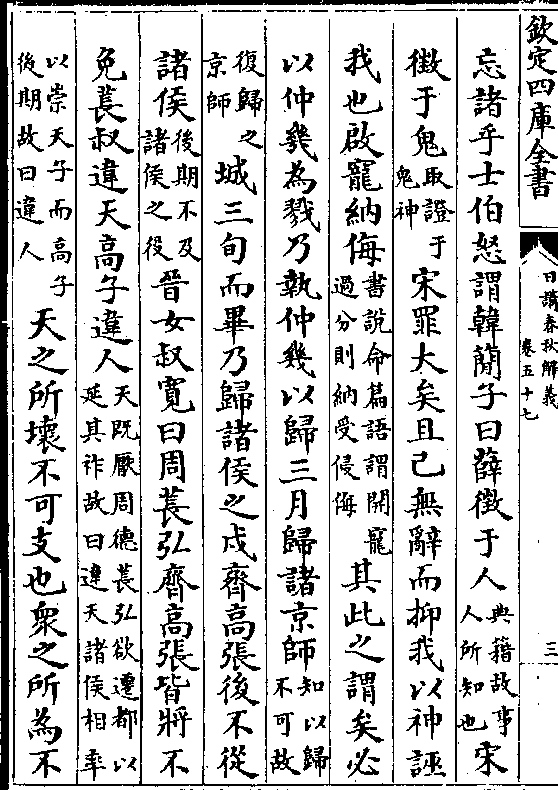 欽定四庫全書
日講春秋解義
卷五十七
三
忘諸乎士伯怒謂韓簡子曰薛徵于人典籍故事人所知也宋
徵于鬼取證于鬼神宋罪大矣且己無辭而抑我以神誣
我也啟寵納侮書說命篇語謂開寵過分則納受侵侮其此之謂矣必
以仲幾為戮乃執仲幾以歸三月歸諸京師知以歸不可故
復歸之京師城三旬而畢乃歸諸侯之戍齊高張後不從
諸侯後期不及諸侯之役晉女叔寬曰周萇弘齊高張皆將不
免萇叔違天高子違人天既厭周德萇弘欲遷都以延其祚故曰違天諸侯相率
以崇天子而高子後期故曰違人天之所壞不可支也衆之所為不